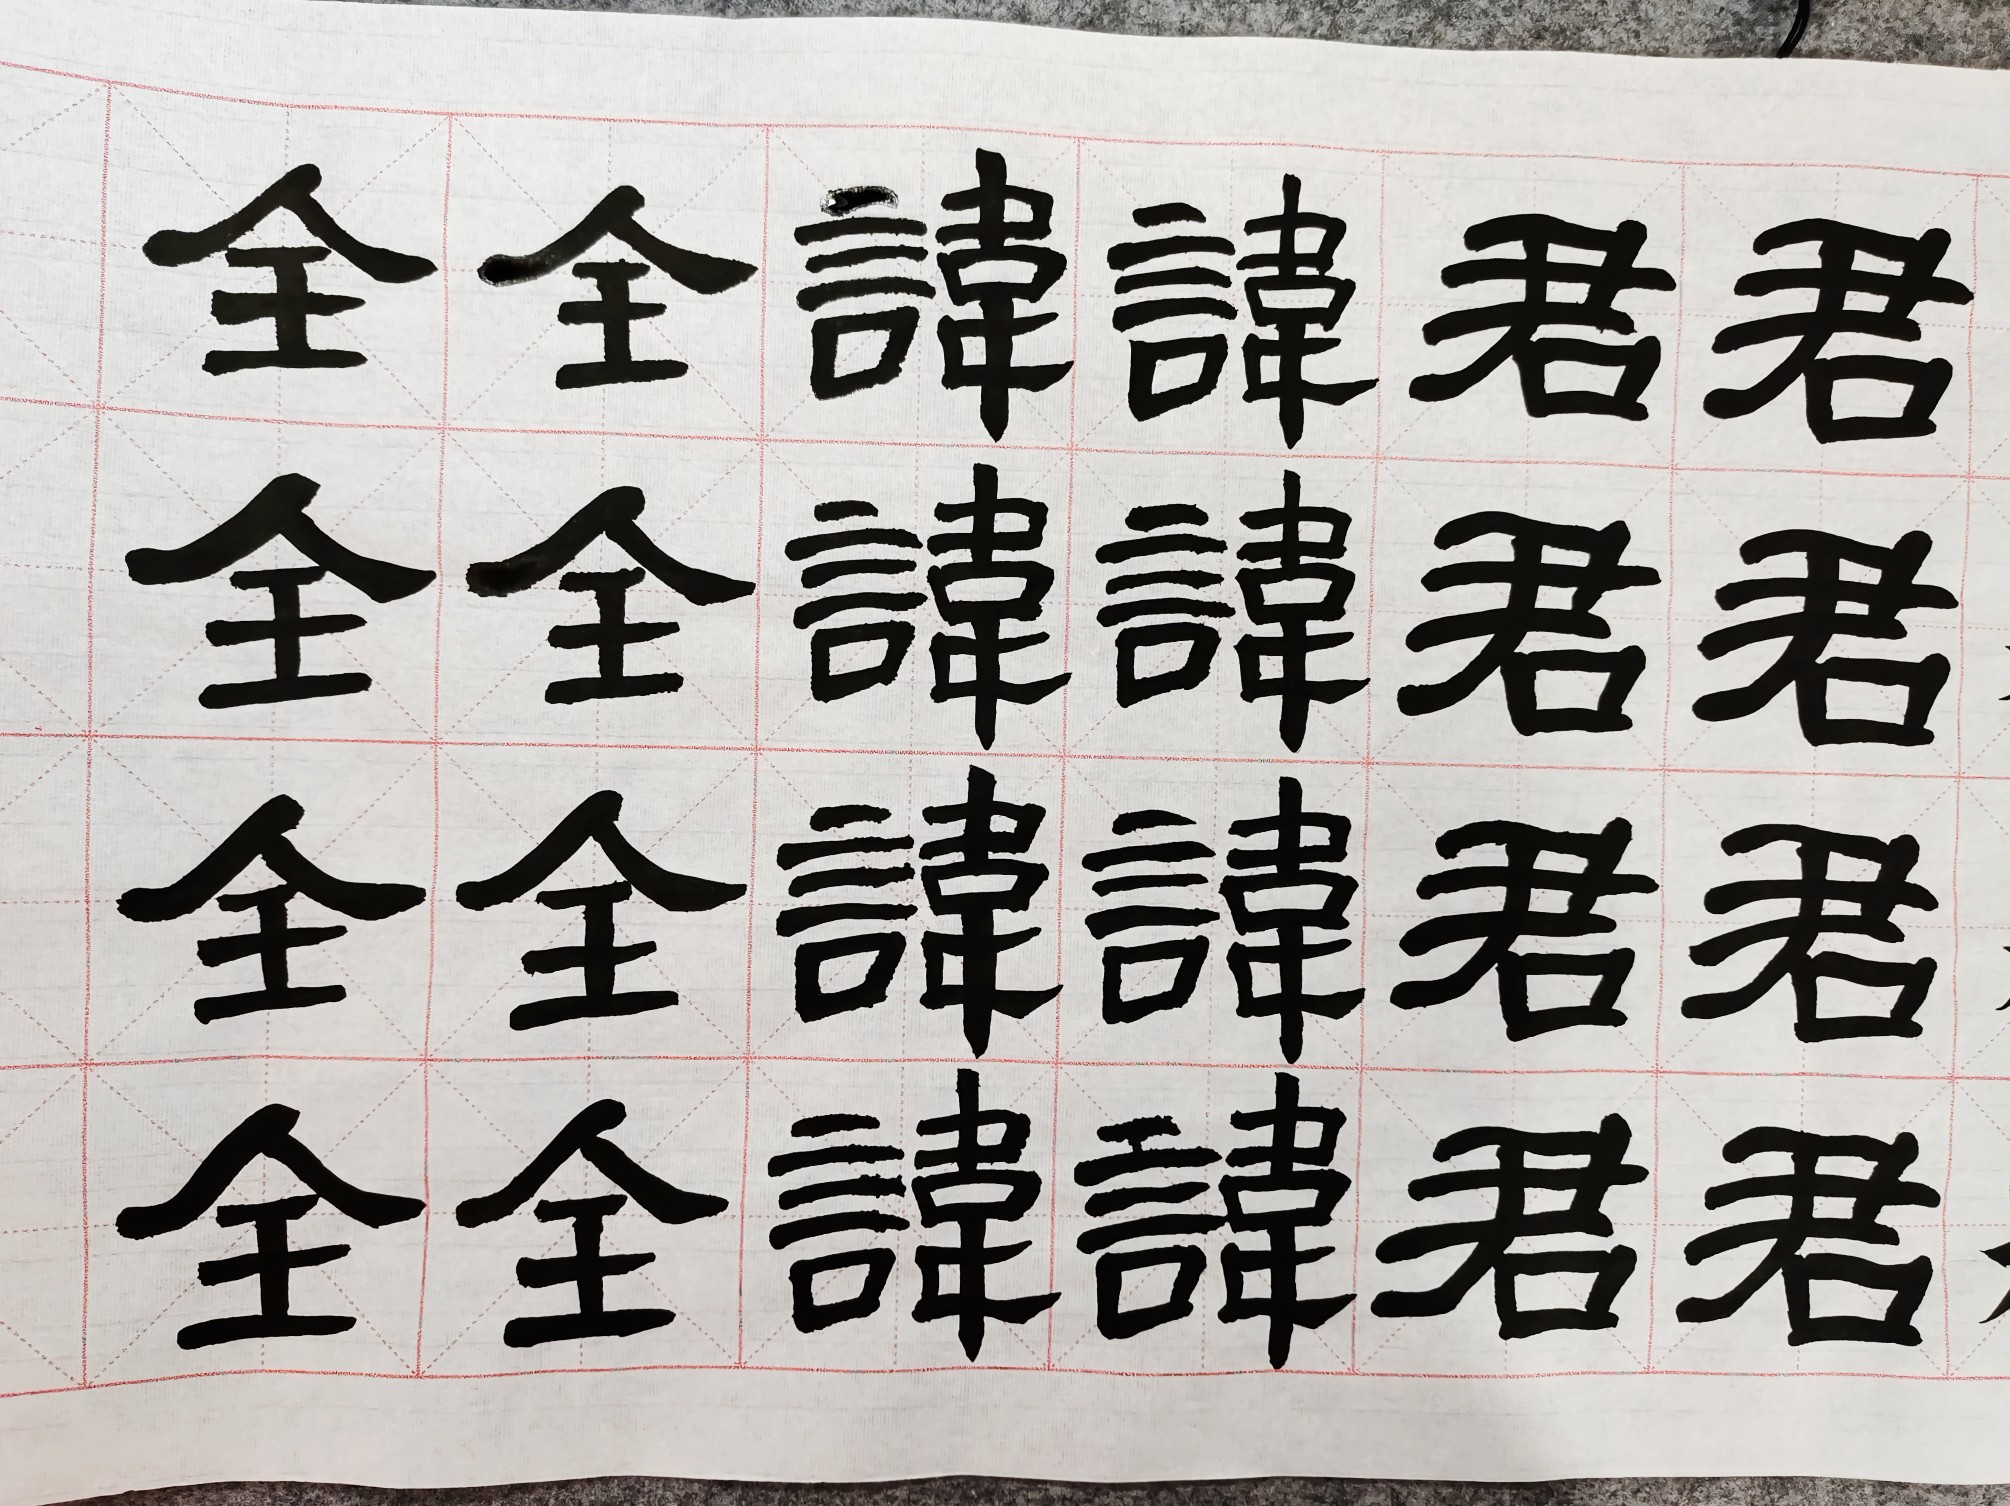 君君君君
君君君君
諱諱諱諱
諱諱諱諱
全全全全
全全全全